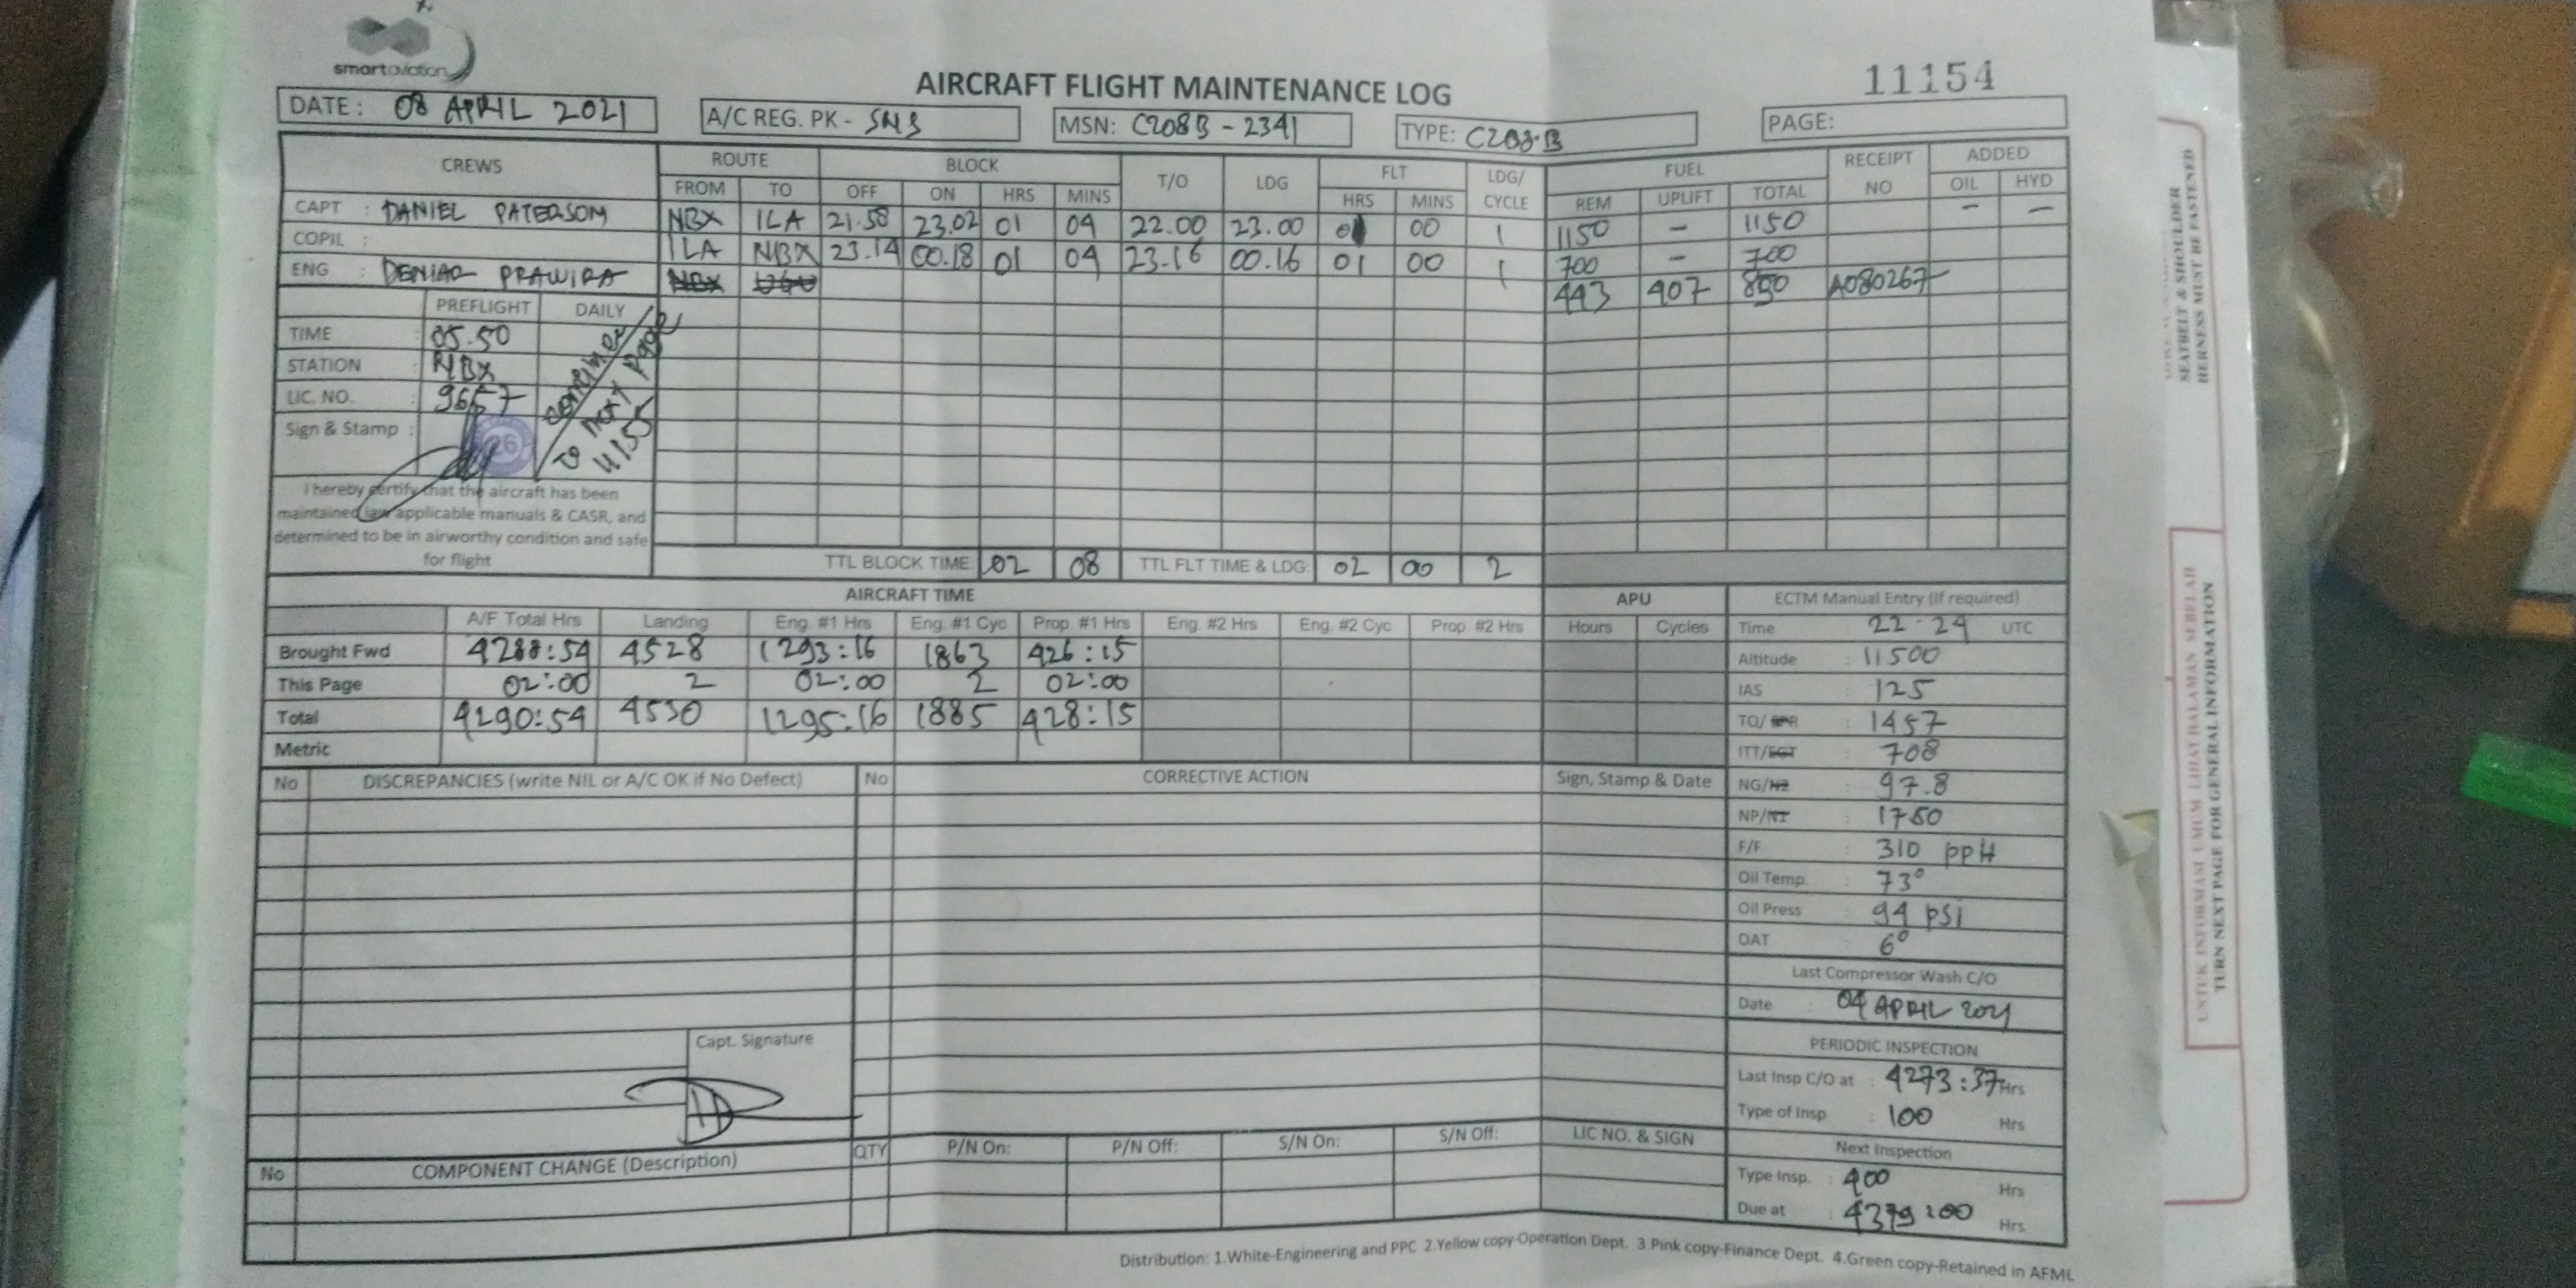 smartaviation
AIRCRAFT FLIGHT MAINTENANCE LOG
11154
DATE: 08 APRIL 2021
A/C REG. PK - SNS
MSN: C208B - 2341
TYPE: C208·B
PAGE:
CREWS ROUTE BLOCK T/O LDG FLT LDG/ CYCLE FUEL RECEIPT NO ADDED
FROM TO OFF ON HRS MINS HRS MINS REM UPLIFT TOTAL OIL HYD
CAPT : DANIEL PATERSOM NBX ILA 21.58 23.02 01 04 22.00 23.00 01 00 1 1150 - 1150 - -
COPIL : ILA NBX 23.14 00.18 01 04 23.16 00.16 01 00 1 700 - 700
ENG : DENIAR PRAWIRA NBX 443 407 850 A080267
PREFLIGHT DAILY
TIME : 05.50
STATION : NBX
LIC. NO. : 9657
Sign & Stamp : 26
continue
to next page
11155
I hereby certify that the aircraft has been
maintained iaw applicable manuals & CASR, and
determined to be in airworthy condition and safe
for flight
TTL BLOCK TIME: 02 08 TTL FLT TIME & LDG: 02 00 2
AIRCRAFT TIME
A/F Total Hrs Landing Eng. #1 Hrs Eng. #1 Cyc Prop. #1 Hrs Eng. #2 Hrs Eng. #2 Cyc Prop #2 Hrs
Brought Fwd 4288:54 4528 1293:16 1863 426:15
This Page 02:00 2 02:00 2 02:00
Total 4290:54 4530 1295:16 1885 428:15
Metric
APU
Hours Cycles
ECTM Manual Entry (If required)
Time : 22·24 UTC
Altitude : 11500
IAS : 125
TQ/ EPR : 1457
ITT/EGT : 708
NG/N2 : 97.8
NP/N1 : 1750
F/F : 310 ppH
Oil Temp. : 73°
Oil Press : 94 psi
OAT : 6°
Last Compressor Wash C/O
Date : 04 APRIL 2021
PERIODIC INSPECTION
Last Insp C/O at : 4273:37 Hrs
Type of Insp : 100 Hrs
Next Inspection
Type Insp. : 400 Hrs
Due at : 4379:00 Hrs
No DISCREPANCIES (write NIL or A/C OK if No Defect) No CORRECTIVE ACTION Sign, Stamp & Date
Capt. Signature
No COMPONENT CHANGE (Description) QTY P/N On: P/N Off: S/N On: S/N Off: LIC NO. & SIGN
Distribution: 1.White-Engineering and PPC 2.Yellow copy-Operation Dept. 3.Pink copy-Finance Dept. 4.Green copy-Retained in AFML
SEATBELT & SHOULDER
HERNESS MUST BE FASTENED
UNTUK INFORMASI UMUM LIHAT HALAMAN SEBELAH
TURN NEXT PAGE FOR GENERAL INFORMATION